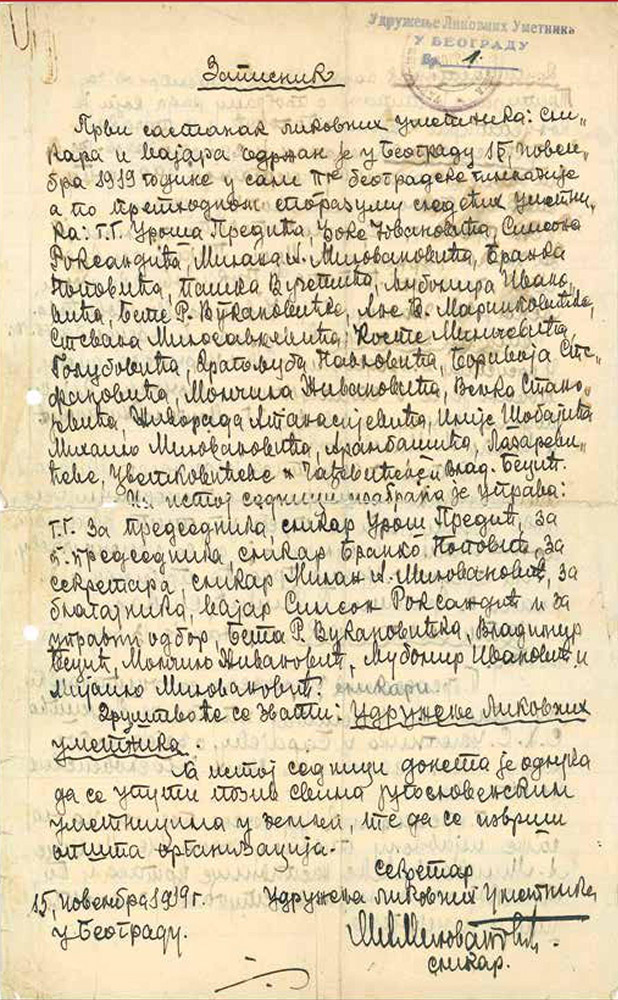 Удружење Ликовних Уметника
У БЕОГРАДУ
Бр. 1.
Записник
Први састанак ликовних уметника: сли-
кара и вајара одржан је у Београду 15, новем-
бра 1919 године у сали београдске гимназије
а по претходном споразуму следећих уметни-
ка: г.г. Уроша Предића, Ђоке Јовановића, Симеона
Роксандића, Милана А. Миловановића, Бранка
Поповића, Пашка Вучетића, Љубомира Ивано-
вића, Бете Р. Вукановићке, В. Маринковића,
Стевана Милосављевића, Косте Миличевића,
Голубовића, Драгољуба Павловића, Боривоја Сте-
фановића, Момчила Живановића, Вељка Стано-
јевића, Живорада Атанасијевића, Илије Шобајића
Михаило Миловановића, Арамбашића, Лазареви-
ћеве, Цветковићеве и Влад. Бецић.
На истој седници изабрата је управа:
г.г. За председника, сликар Урош Предић, за
п. председника, сликар Бранко Поповић, за
секретара, сликар Милан А. Миловановић, за
благајника, вајар Симеон Роксандић и за
управни одбор, Бета Р. Вукановићка, Владимир
Бецић, Момчило Живановић, Љубомир Ивановић и
Мијаило Миловановић.
Друштво ће се звати: Удружење ликовних
уметника.
На истој седници донета је одлука
да се упути позив свима југословенским
уметницима у земљи, те да се изврши
општа организација.
секретар
15, новембра 1919 г. Удружења ликовних Уметника,
у Београду. М.А.Миловановић.
сликар.